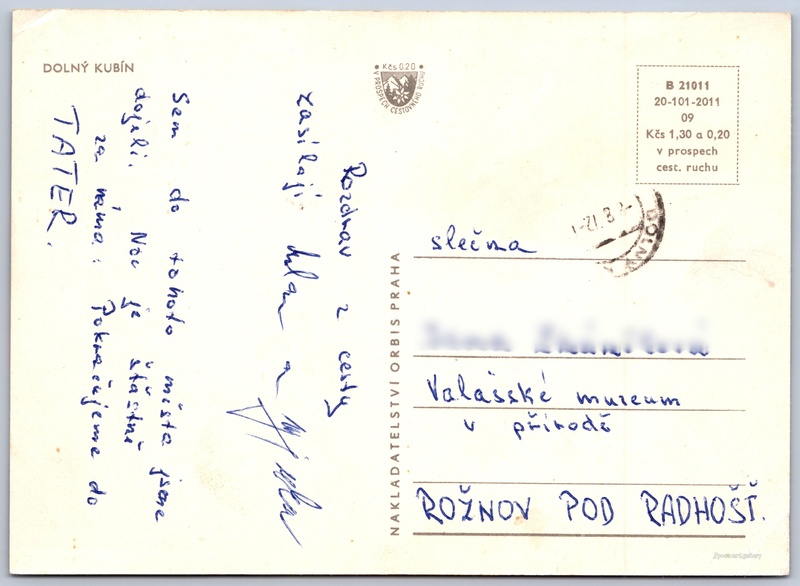 DOLNÝ KUBÍN
Kčs 0,20
V PROSPECH CESTOVNÉHO RUCHU
B 21011
20-101-2011
09
Kčs 1,30 a 0,20
v prospech
cest. ruchu
Pozdrav z cesty
zasílají
a
Sem do tohoto místa jsme
dojeli. Noc je šťastně
za náma. Pokračujeme do
TATER.
NAKLADATELSTVÍ ORBIS PRAHA
DOLNÝ
slečna
Valašské muzeum
v přírodě
ROŽNOV POD RADHOŠŤ.